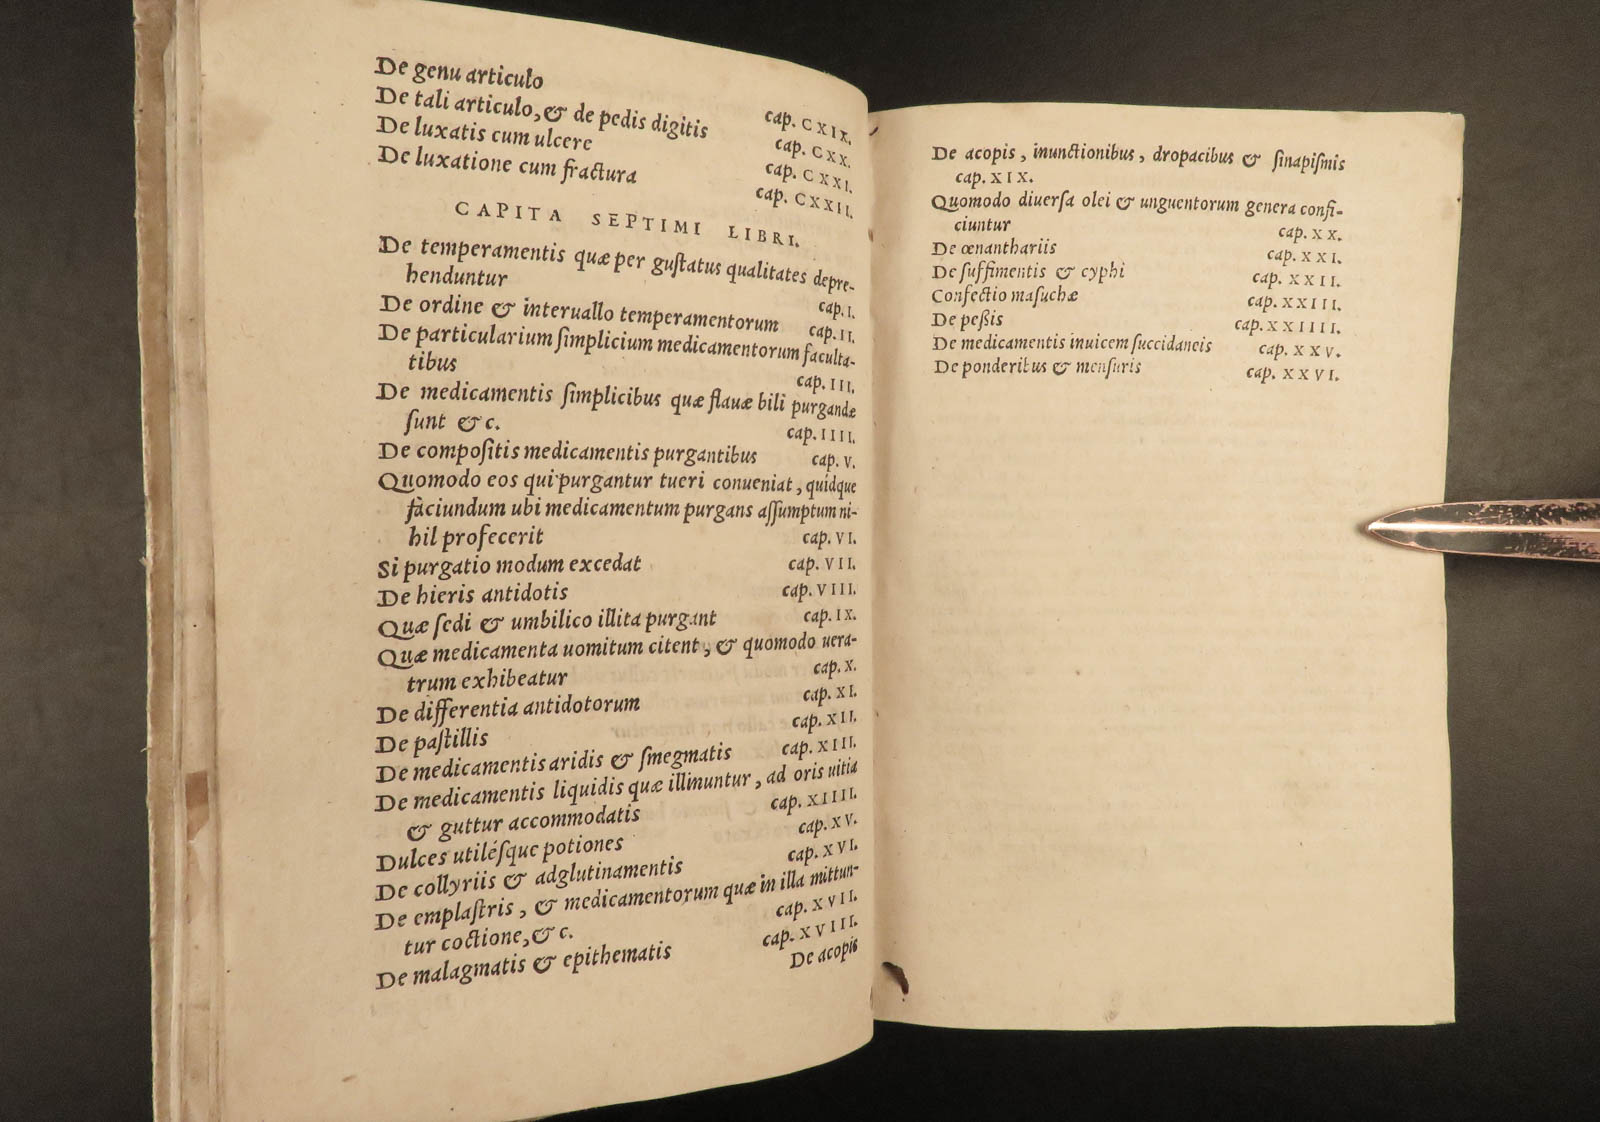 De genu articulo cap. CXIX.
De tali articulo, & de pedis digitis cap. CXX.
De luxatis cum ulcere cap. CXXI.
De luxatione cum fractura cap. CXXII.
CAPITA SEPTIMI LIBRI.
De temperamentis quæ per guſtatus qualitates depre-
henduntur cap. I.
De ordine & interuallo temperamentorum cap. II.
De particularium ſimplicium medicamentorum faculta-
tibus cap. III.
De medicamentis ſimplicibus quæ flauæ bili purgandæ
ſunt & c. cap. IIII.
De compoſitis medicamentis purgantibus cap. V.
Quomodo eos qui purgantur tueri conueniat, quidque
faciundum ubi medicamentum purgans aſſumptum ni-
hil profecerit cap. VI.
Si purgatio modum excedat cap. VII.
De hieris antidotis cap. VIII.
Quæ ſedi & umbilico illita purgant cap. IX.
Quæ medicamenta uomitum citent, & quomodo uera-
trum exhibeatur cap. X.
De differentia antidotorum cap. XI.
De paſtillis cap. XII.
De medicamentis aridis & ſmegmatis cap. XIII.
De medicamentis liquidis quæ illinuntur, ad oris uitia
& guttur accommodatis cap. XIIII.
Dulces utiléſque potiones cap. XV.
De collyriis & adglutinamentis cap. XVI.
De emplaſtris, & medicamentorum quæ in illa mittun-
tur coctione, & c. cap. XVII.
De malagmatis & epithematis cap. XVIII.
De acopis
De acopis, inunctionibus, dropacibus & ſinapiſmis
cap. XIX.
Quomodo diuerſa olei & unguentorum genera confi-
ciuntur cap. XX.
De œnanthariis cap. XXI.
De ſuffimentis & cyphi cap. XXII.
Confectio maſuchæ cap. XXIII.
De peßis cap. XXIIII.
De medicamentis inuicem ſuccidaneis cap. XXV.
De ponderibus & menſuris cap. XXVI.